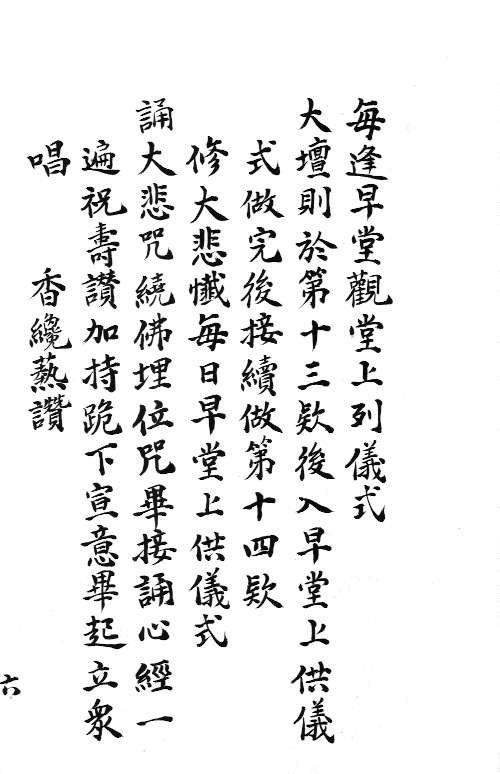 每逢早堂觀堂上列儀式
大壇則於第十三欵後入早堂上供儀
式做完後接續做第十四欵
修大悲懺每日早堂上供儀式
誦大悲咒繞佛埋位咒畢接誦心經一
遍祝壽讚加持跪下宣意畢起立衆
唱　香纔爇讚
六